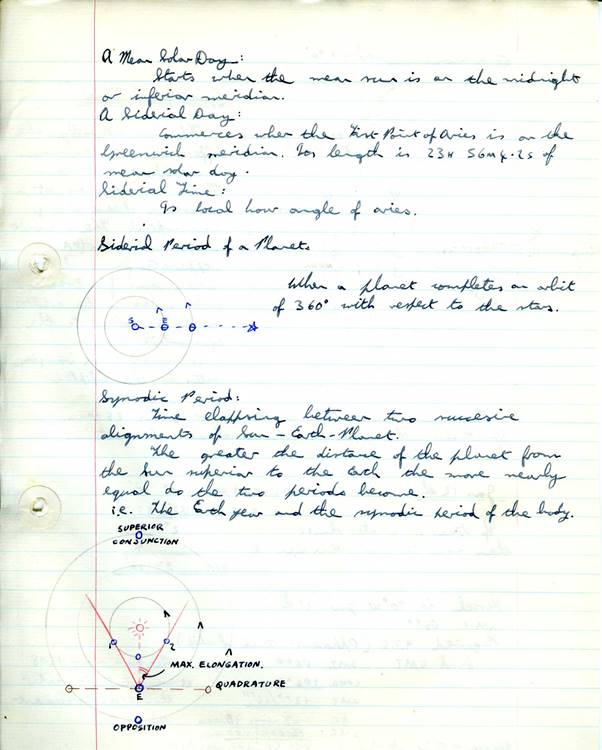 A Mean Solar Day:
Starts when the mean sun is on the midnight
or inferior meridian.
A Siderial Day:
Commences when the First Point of Aries is on the
Greenwich meridian. Its length is 23H 56M 4.2S of
mean solar day.
Siderial Time:
Is local hour angle of aries.
Siderial Period of a Planets
When a planet completes an orbit
of 360° with respect to the stars.
S E
Synodic Period:
Time elappsing between two succesive
alignments of Sun - Earth - Planet.
The greater the distance of the planet from
the Sun superior to the Earth the more nearly
equal do the two periods become.
i.e. The Earth year and the synodic period of the body.
SUPERIOR
CONJUNCTION
1 2
MAX. ELONGATION.
QUADRATURE
E
OPPOSITION